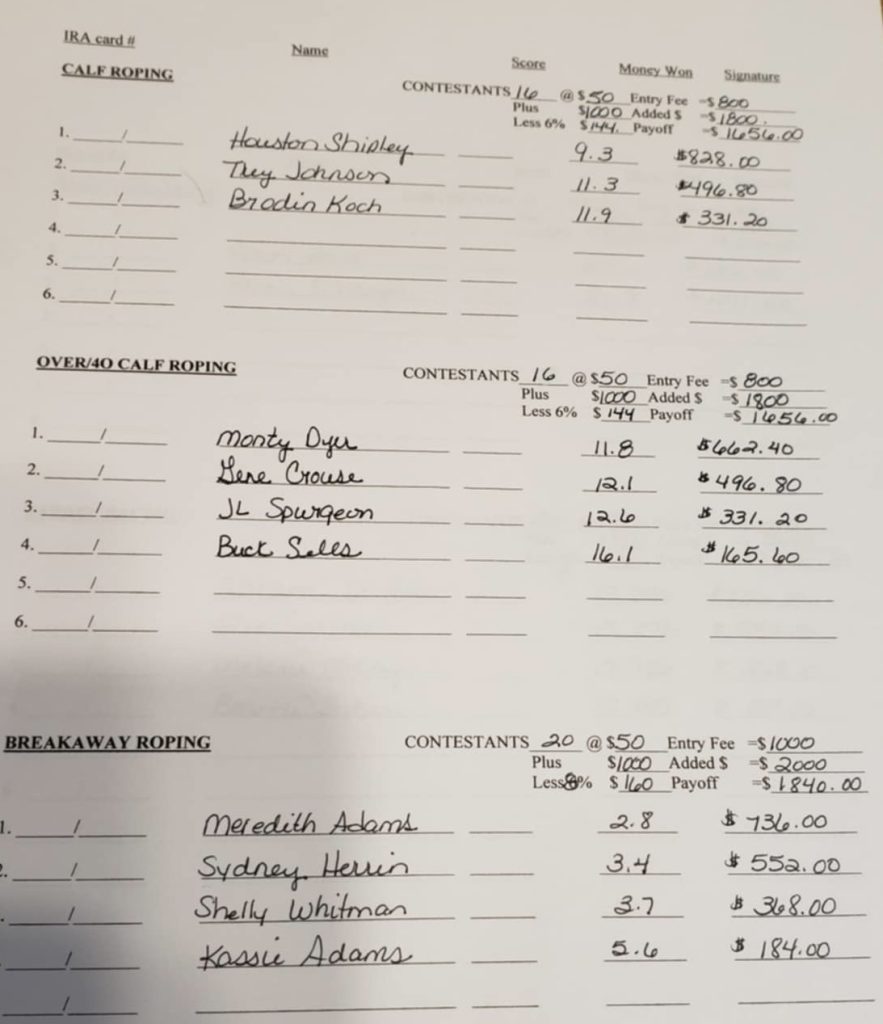 IRA card # Name Score Money Won Signature
CALF ROPING CONTESTANTS 16 @ $ 50 Entry Fee =$ 800
Plus $1000 Added $ =$ 1800.
Less 6% $ 144. Payoff =$ 1656.00
1. / Houston Shipley 9.3 $828.00
2. / Trey Johnson 11.3 $496.80
3. / Brodin Koch 11.9 $ 331.20
4. /
5. /
6. /
OVER/4O CALF ROPING CONTESTANTS 16 @ $50 Entry Fee =$ 800
Plus $1000 Added $ =$ 1800
Less 6% $ 144 Payoff =$ 1656.00
1. / Monty Dyer 11.8 $662.40
2. / Gene Crouse 12.1 $ 496.80
3. / JL Spurgeon 12.6 $ 331.20
4. / Buck Seles 16.1 $ 165.60
5. /
6. /
BREAKAWAY ROPING CONTESTANTS 20 @ $50 Entry Fee =$1000
Plus $1000 Added $ =$ 2000
Less 8% $ 160 Payoff =$ 1840.00
1. / Meredith Adams 2.8 $ 736.00
. / Sydney Herrin 3.4 $ 552.00
. / Shelly Whitman 3.7 $ 368.00
/ Kassie Adams 5.6 $ 184.00
/